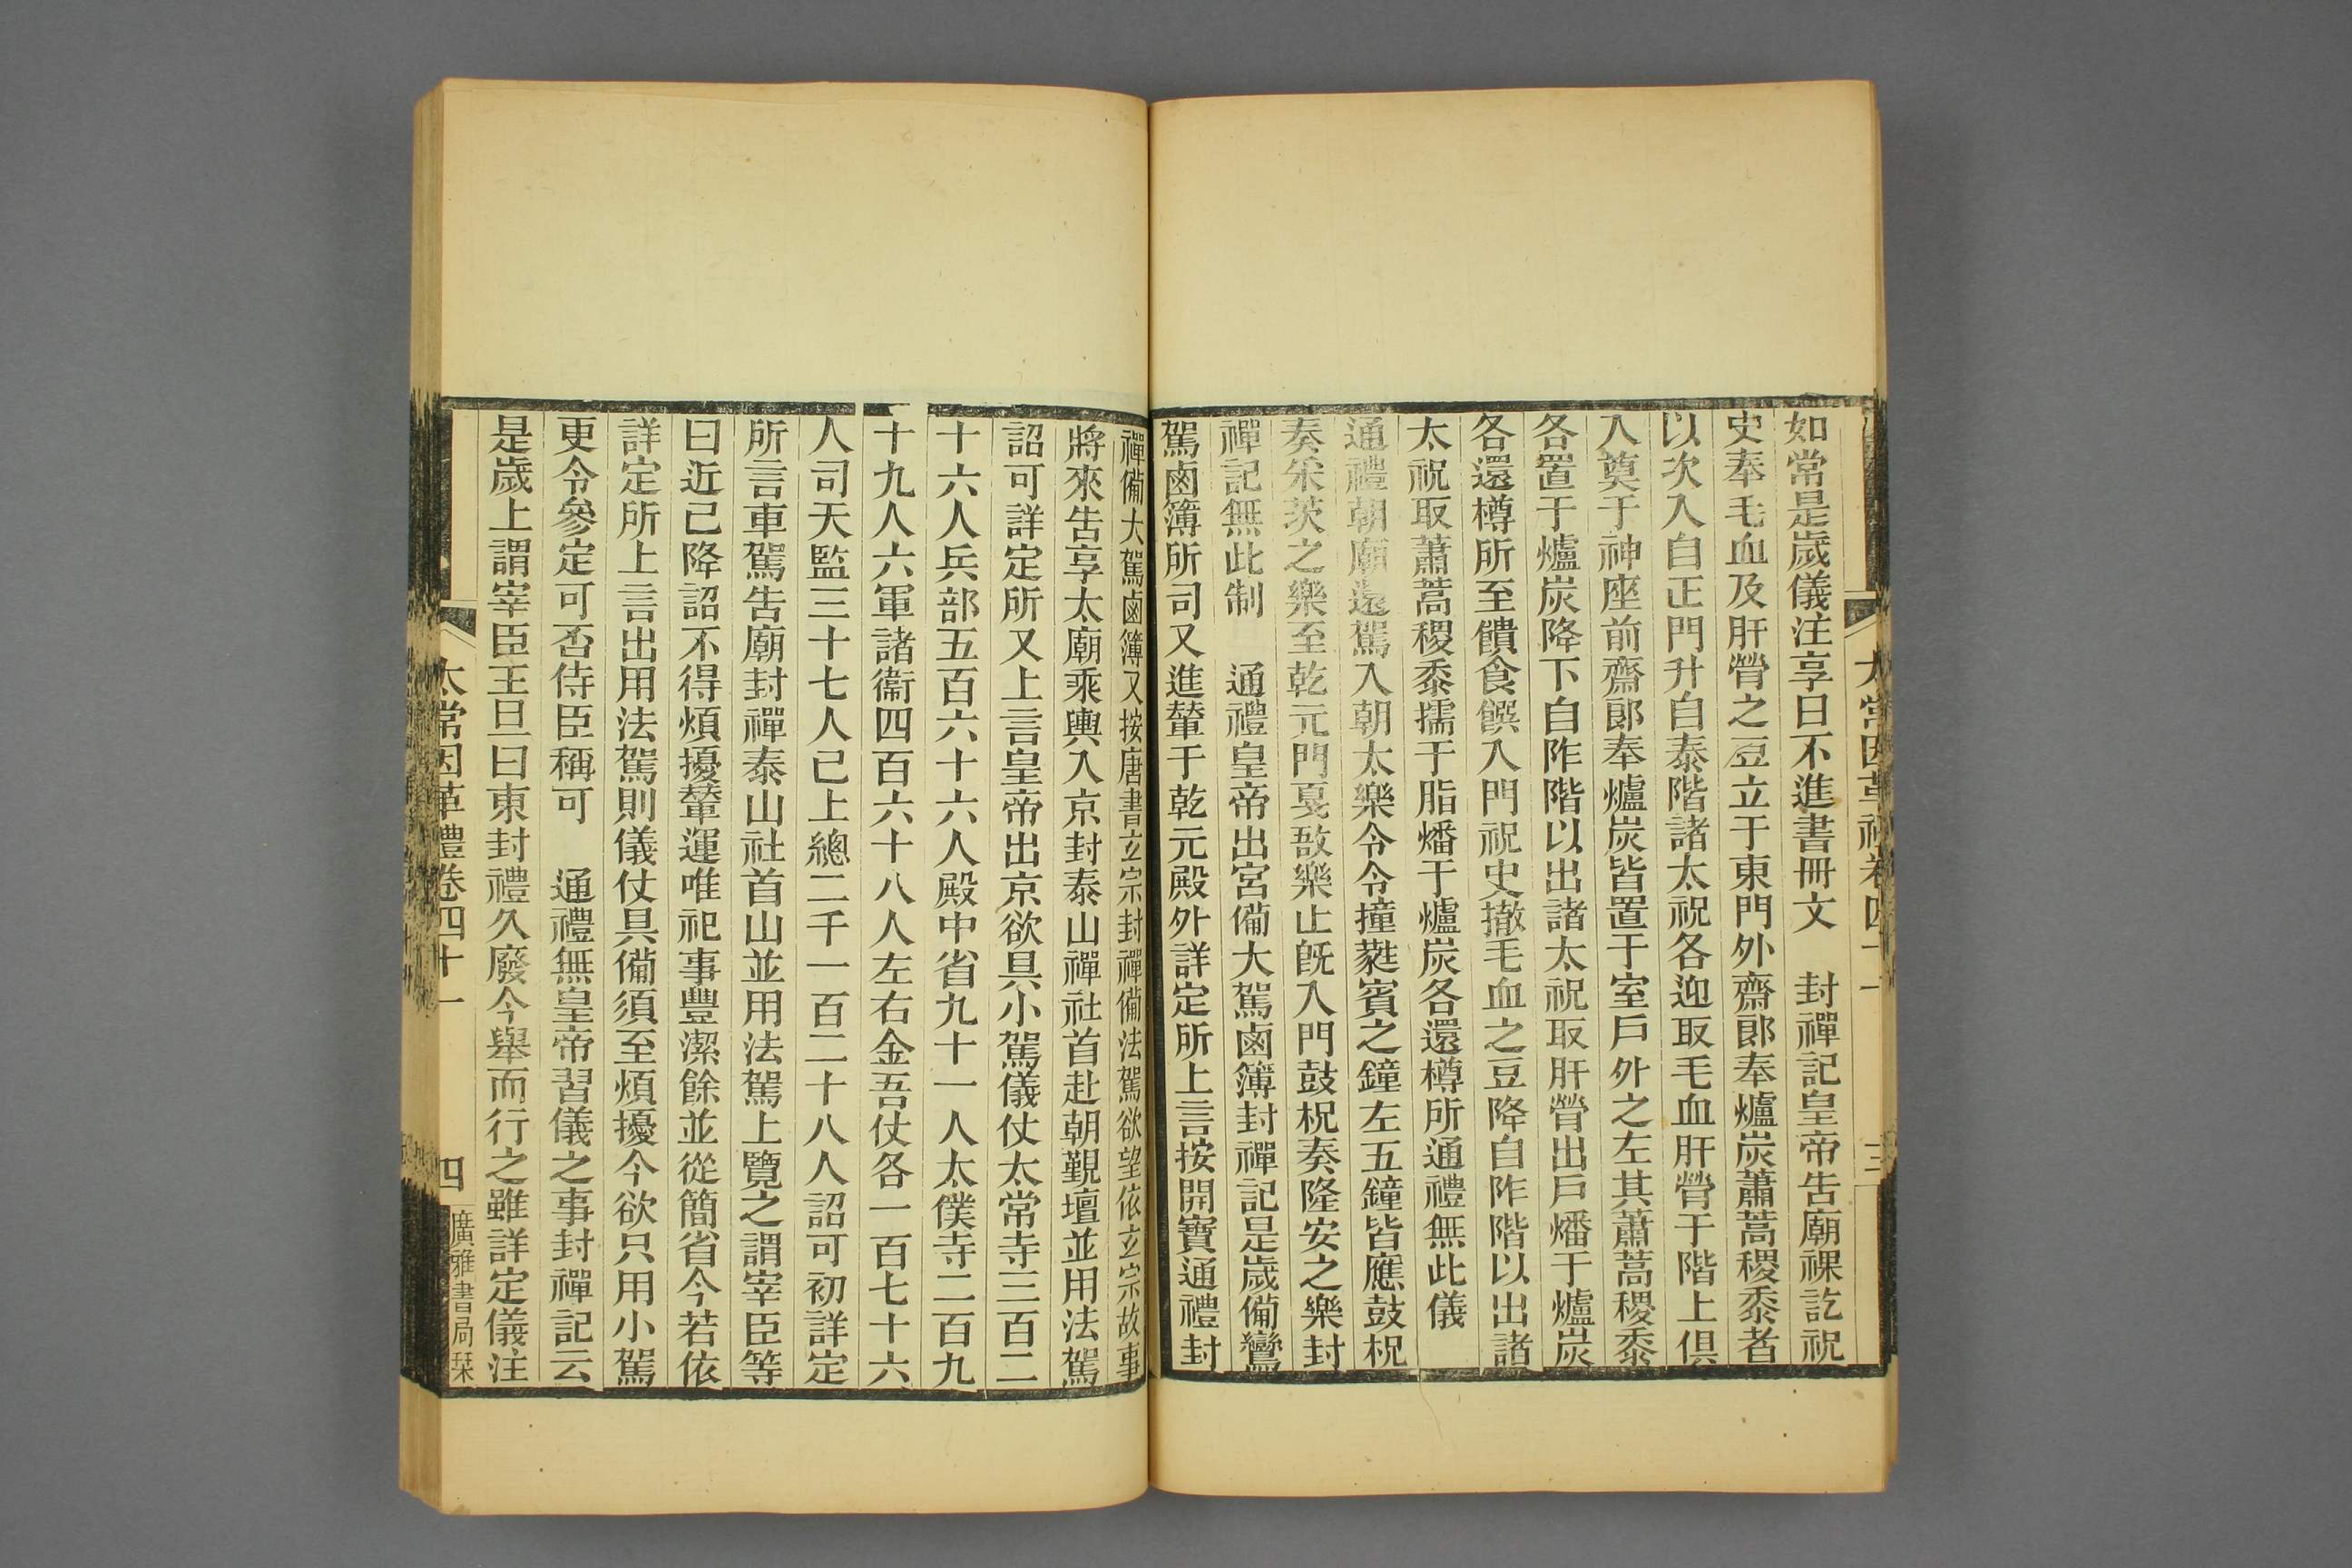 太常因革禮卷四十一
三
如常是歲儀注享日不進書冊文　封禪記皇帝告廟祼訖祝
史奉毛血及肝膋之豆立于東門外齋郎奉爐炭蕭蒿稷黍者
以次入自正門升自泰階諸太祝各迎取毛血肝膋于階上俱
入奠于神座前齋郎奉爐炭皆置于室戶外之左其蕭蒿稷黍
各置于爐炭降下自阼階以出諸太祝取肝膋出戶燔于爐炭
各還樽所至饋食饌入門祝史撤毛血之豆降自阼階以出諸
太祝取蕭蒿稷黍擩于脂燔于爐炭各還樽所通禮無此儀
通禮朝廟還駕入朝太樂令令撞蕤賓之鐘左五鐘皆應鼓柷
奏采茨之樂至乾元門戛敔樂止旣入門鼓柷奏隆安之樂封
禪記無此制　通禮皇帝出宮備大駕鹵簿封禪記是歲備鸞
駕鹵簿所司又進輦于乾元殿外詳定所上言按開寶通禮封
禪備大駕鹵簿又按唐書玄宗封禪備法駕欲望依玄宗故事
將來告享太廟乘輿入京封泰山禪社首赴朝覲壇並用法駕
詔可詳定所又上言皇帝出京欲具小駕儀仗太常寺三百二
十六人兵部五百六十六人殿中省九十一人太僕寺二百九
十九人六軍諸衞四百六十八人左右金吾仗各一百七十六
人司天監三十七人已上總二千一百二十八人詔可初詳定
所言車駕告廟封禪泰山社首山並用法駕上覽之謂宰臣等
曰近已降詔不得煩擾輦運唯祀事豐潔餘並從簡省今若依
詳定所上言出用法駕則儀仗具備須至煩擾今欲只用小駕
更令參定可否侍臣稱可　通禮無皇帝習儀之事封禪記云
是歲上謂宰臣王旦曰東封禮久廢今舉而行之雖詳定儀注
太常因革禮卷四十一
四
廣雅書局栞